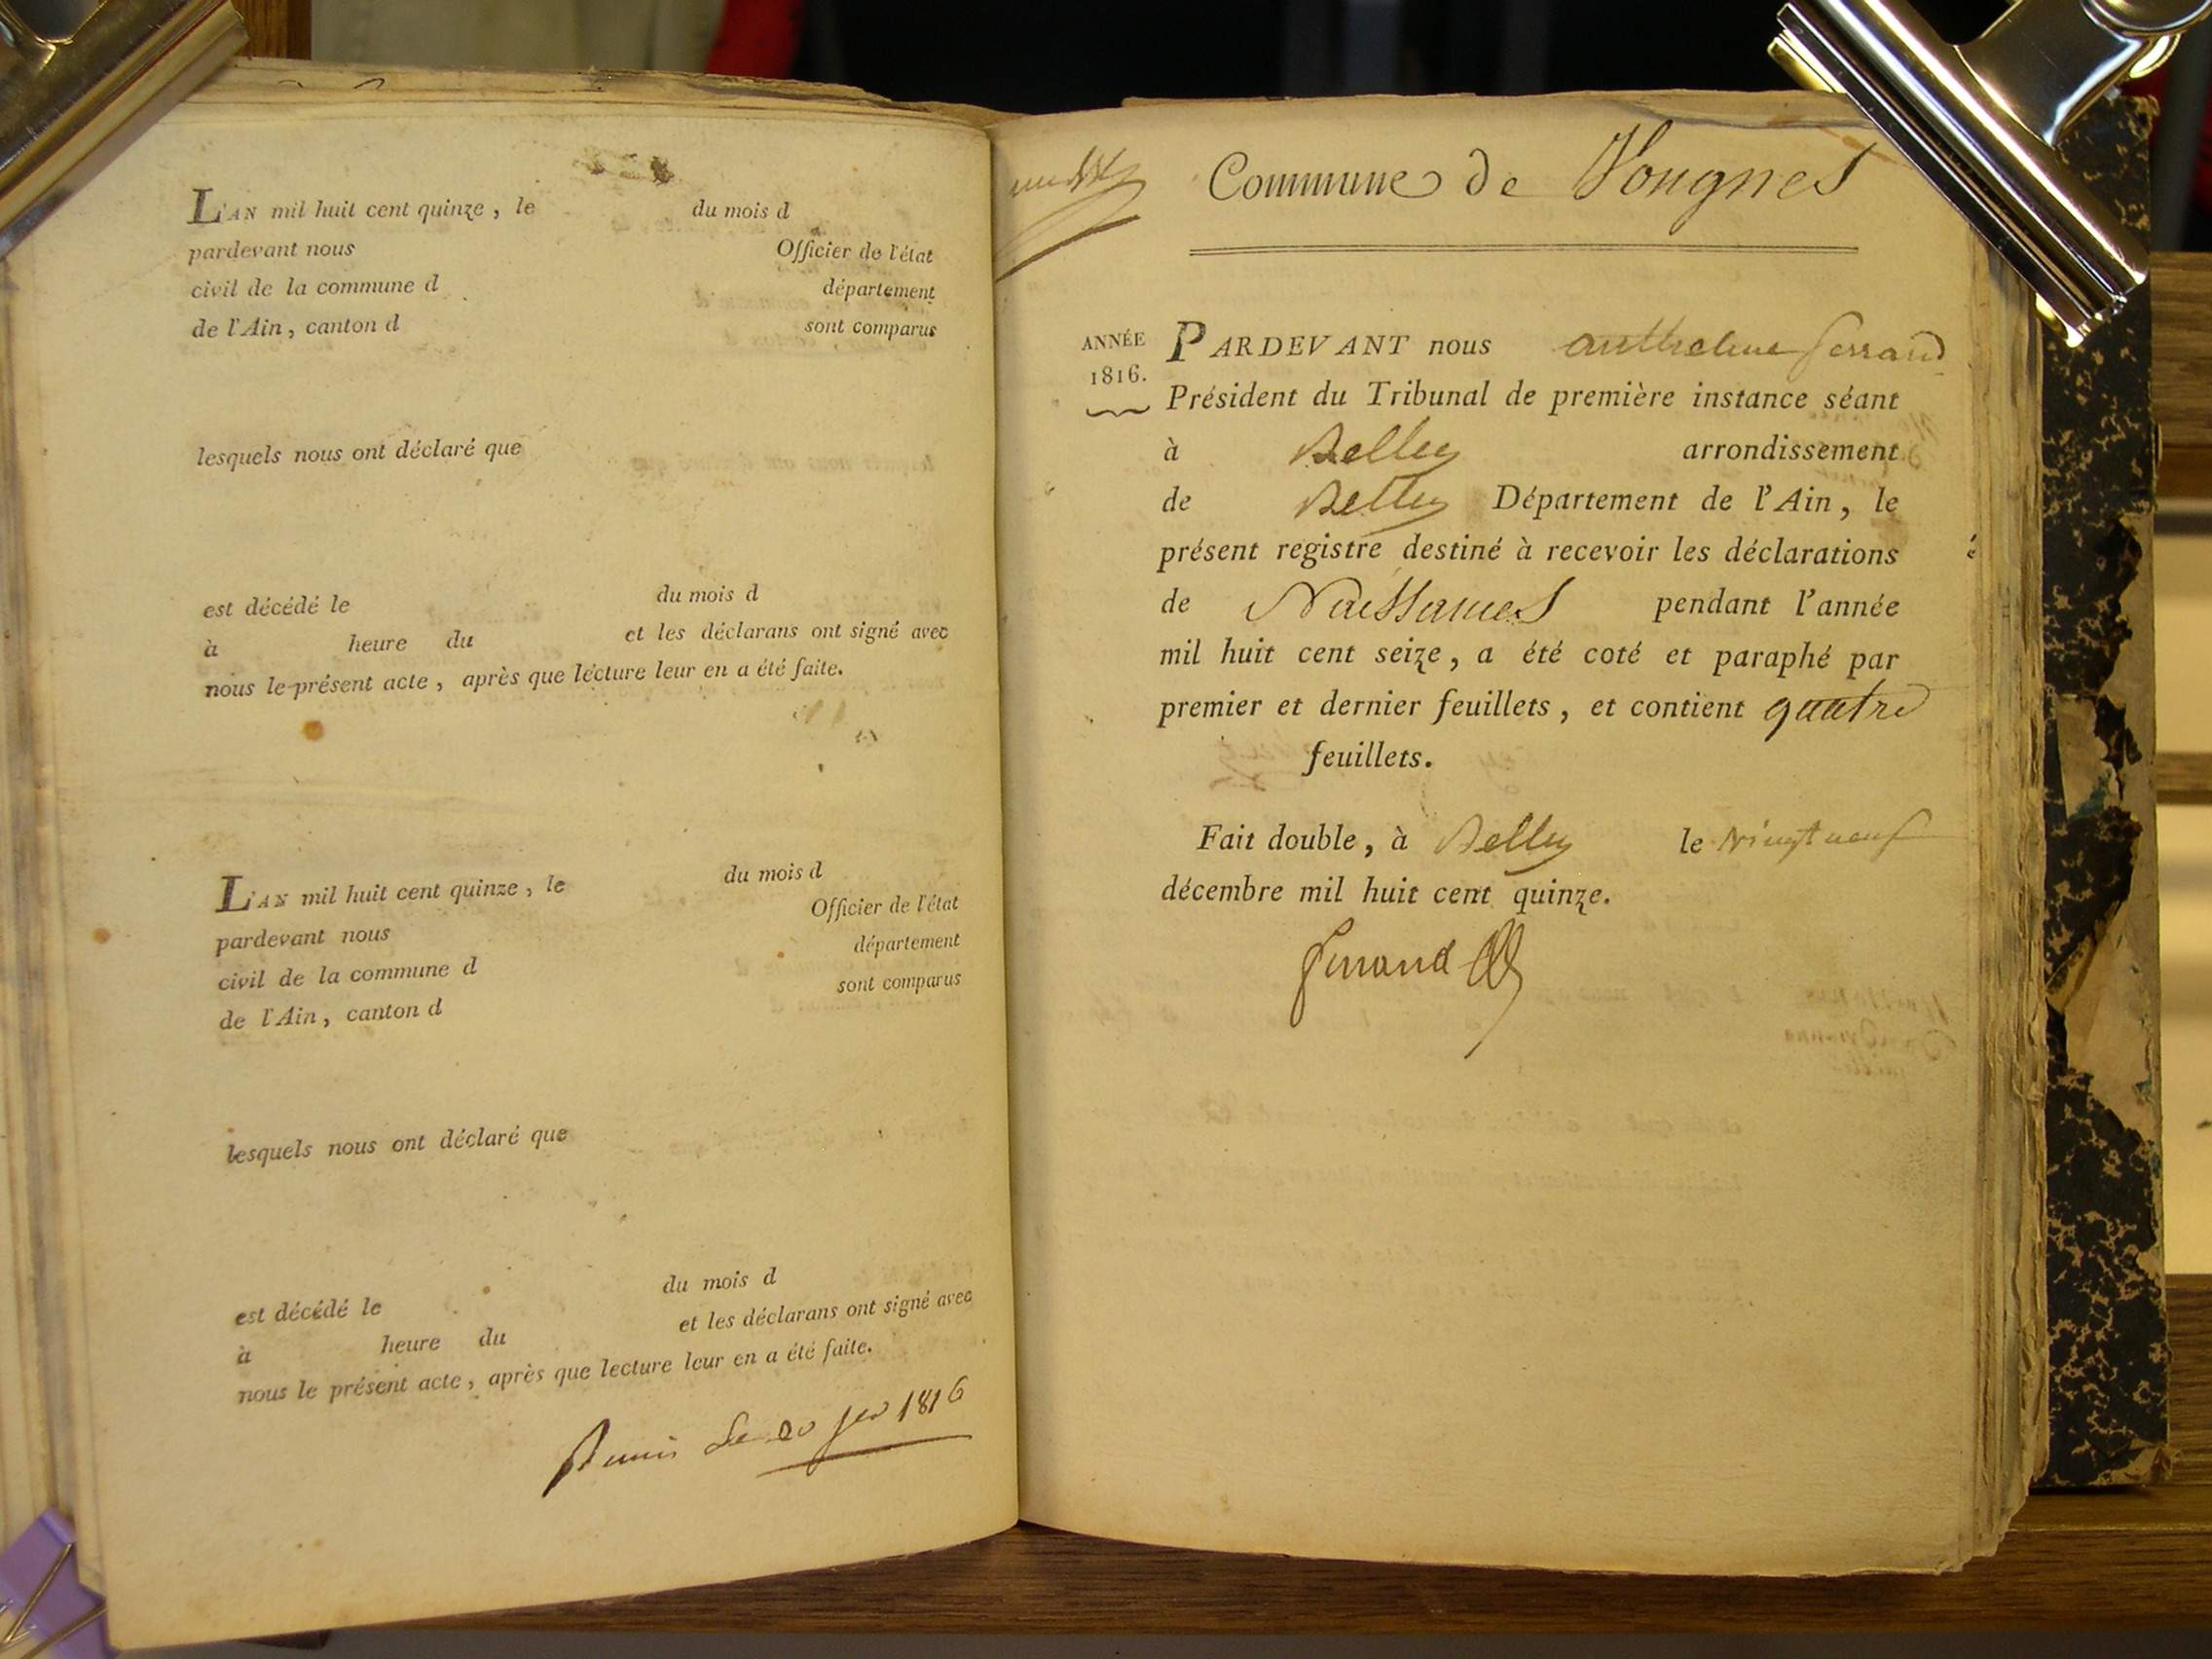 L'AN mil huit cent quinze, le du mois d
pardevant nous Officier de l'état
civil de la commune d département
de l'Ain, canton d sont comparus
lesquels nous ont déclaré que
est décédé le du mois d
à heure du et les déclarans ont signé avec
nous le présent acte, après que lecture leur en a été faite.
L'AN mil huit cent quinze, le du mois d
pardevant nous Officier de l'état
civil de la commune d département
de l'Ain, canton d sont comparus
lesquels nous ont déclaré que
est décédé le du mois d
à heure du et les déclarans ont signé avec
nous le présent acte, après que lecture leur en a été faite.
Le 20 1816
Commune de Vongnes
ANNÉE
1816.
PARDEVANT nous anthelme ferrand
Président du Tribunal de première instance séant
à Belley arrondissement
de Belley Département de l'Ain, le
présent registre destiné à recevoir les déclarations
de Naissances pendant l'année
mil huit cent seize, a été coté et paraphé par
premier et dernier feuillets, et contient quatre
feuillets.
Fait double, à Belley le vingt neuf
décembre mil huit cent quinze.
ferrand